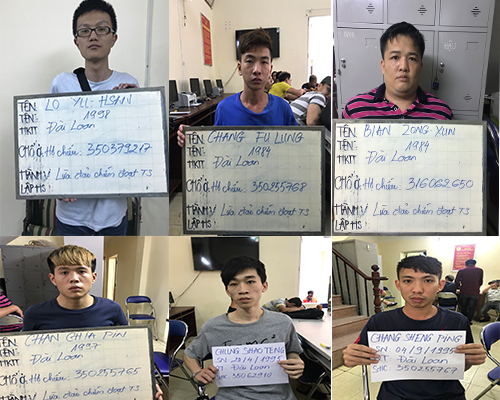 TÊN: LO YU-HSAN
TÊN: 1998
HKTT Đài Loan
CHỖ Ở: Hộ chiếu: 350379217
HÀNH VI Lừa đảo chiếm đoạt TS
LẬP HS:
TÊN: CHANG FU LUNG
TÊN: 1984
HKTT Đài Loan
CHỖ Ở: Hộ chiếu: 350255768
HÀNH VI Lừa đảo chiếm đoạt TS
LẬP HS:
TÊN: BIAN ZONG XUN
TÊN: 1984
HKTT: Đài Loan
CHỖ Ở: Hộ chiếu: 316062650
HÀNH VI Lừa đảo chiếm đoạt TS
LẬP HS:
TÊN: CHAN CHIA PIN
TÊN: 1997
HKTT Đài Loan
CHỖ Ở: Hộ chiếu: 350255765
HÀNH VI Lừa đảo chiếm đoạt TS
CHUNG SHAO TENG
Đài Loan
CHANG SHENG PING
SN 04/9/1995
Đài Loan
350255767